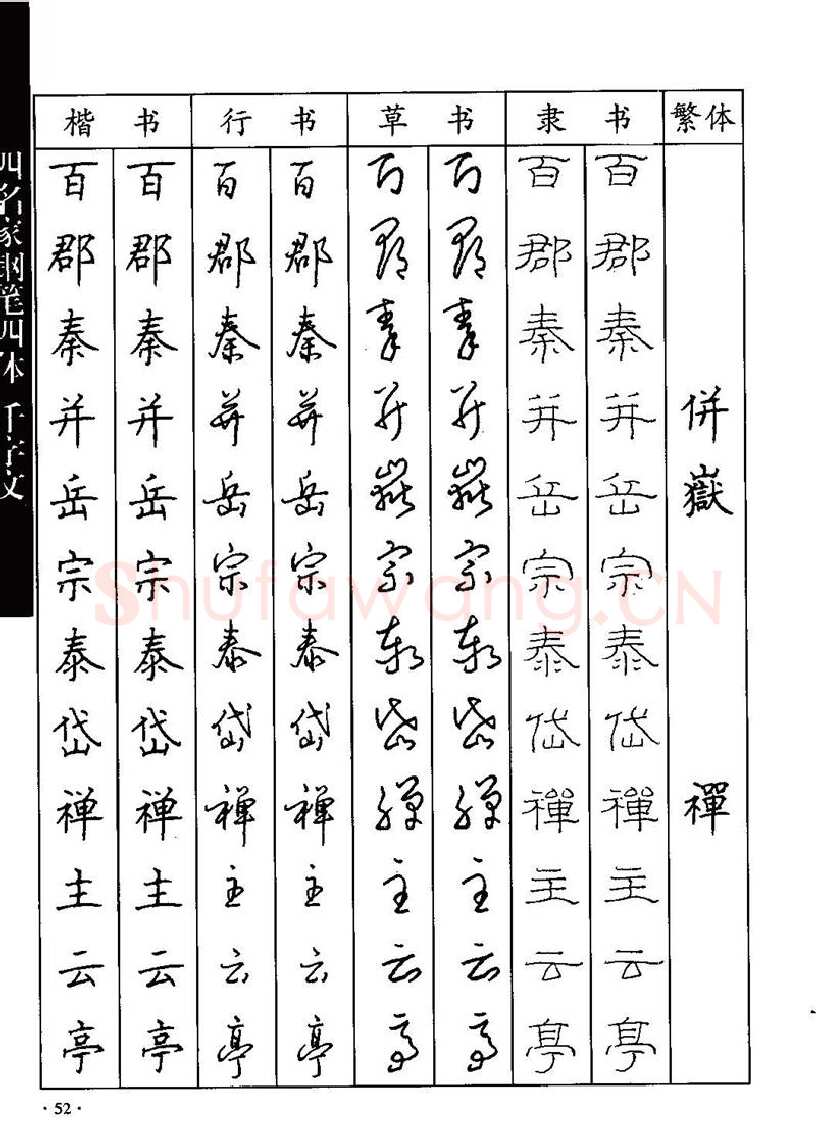 四名家钢笔四体千字文
楷书 行书 草书 隶书 繁体
百 百 百 百 百 百 百 百
郡 郡 郡 郡 郡 郡 郡 郡
秦 秦 秦 秦 秦 秦 秦 秦
并 并 并 并 并 并 并 并 併
岳 岳 岳 岳 嶽 嶽 岳 岳 嶽
宗 宗 宗 宗 宗 宗 宗 宗
泰 泰 泰 泰 泰 泰 泰 泰
岱 岱 岱 岱 岱 岱 岱 岱
禅 禅 禅 禅 禅 禅 禪 禪 禪
主 主 主 主 主 主 主 主
云 云 云 云 云 云 云 云
亭 亭 亭 亭 亭 亭 亭 亭
Shufawang.CN
·52·